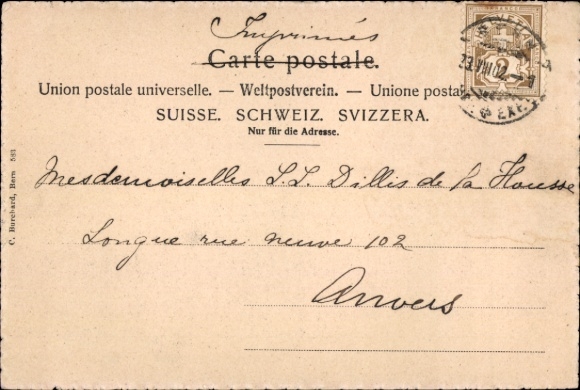 Imprimés
Carte postale.
Union postale universelle. — Weltpostverein. — Unione postal
SUISSE. SCHWEIZ. SVIZZERA.
Nur für die Adresse.
C. Burchard, Bern 581
Mesdemoiselles S. S. Dillis de la Housse
Longue rue neuve 102
Anvers
VIII 02
EXP.
2